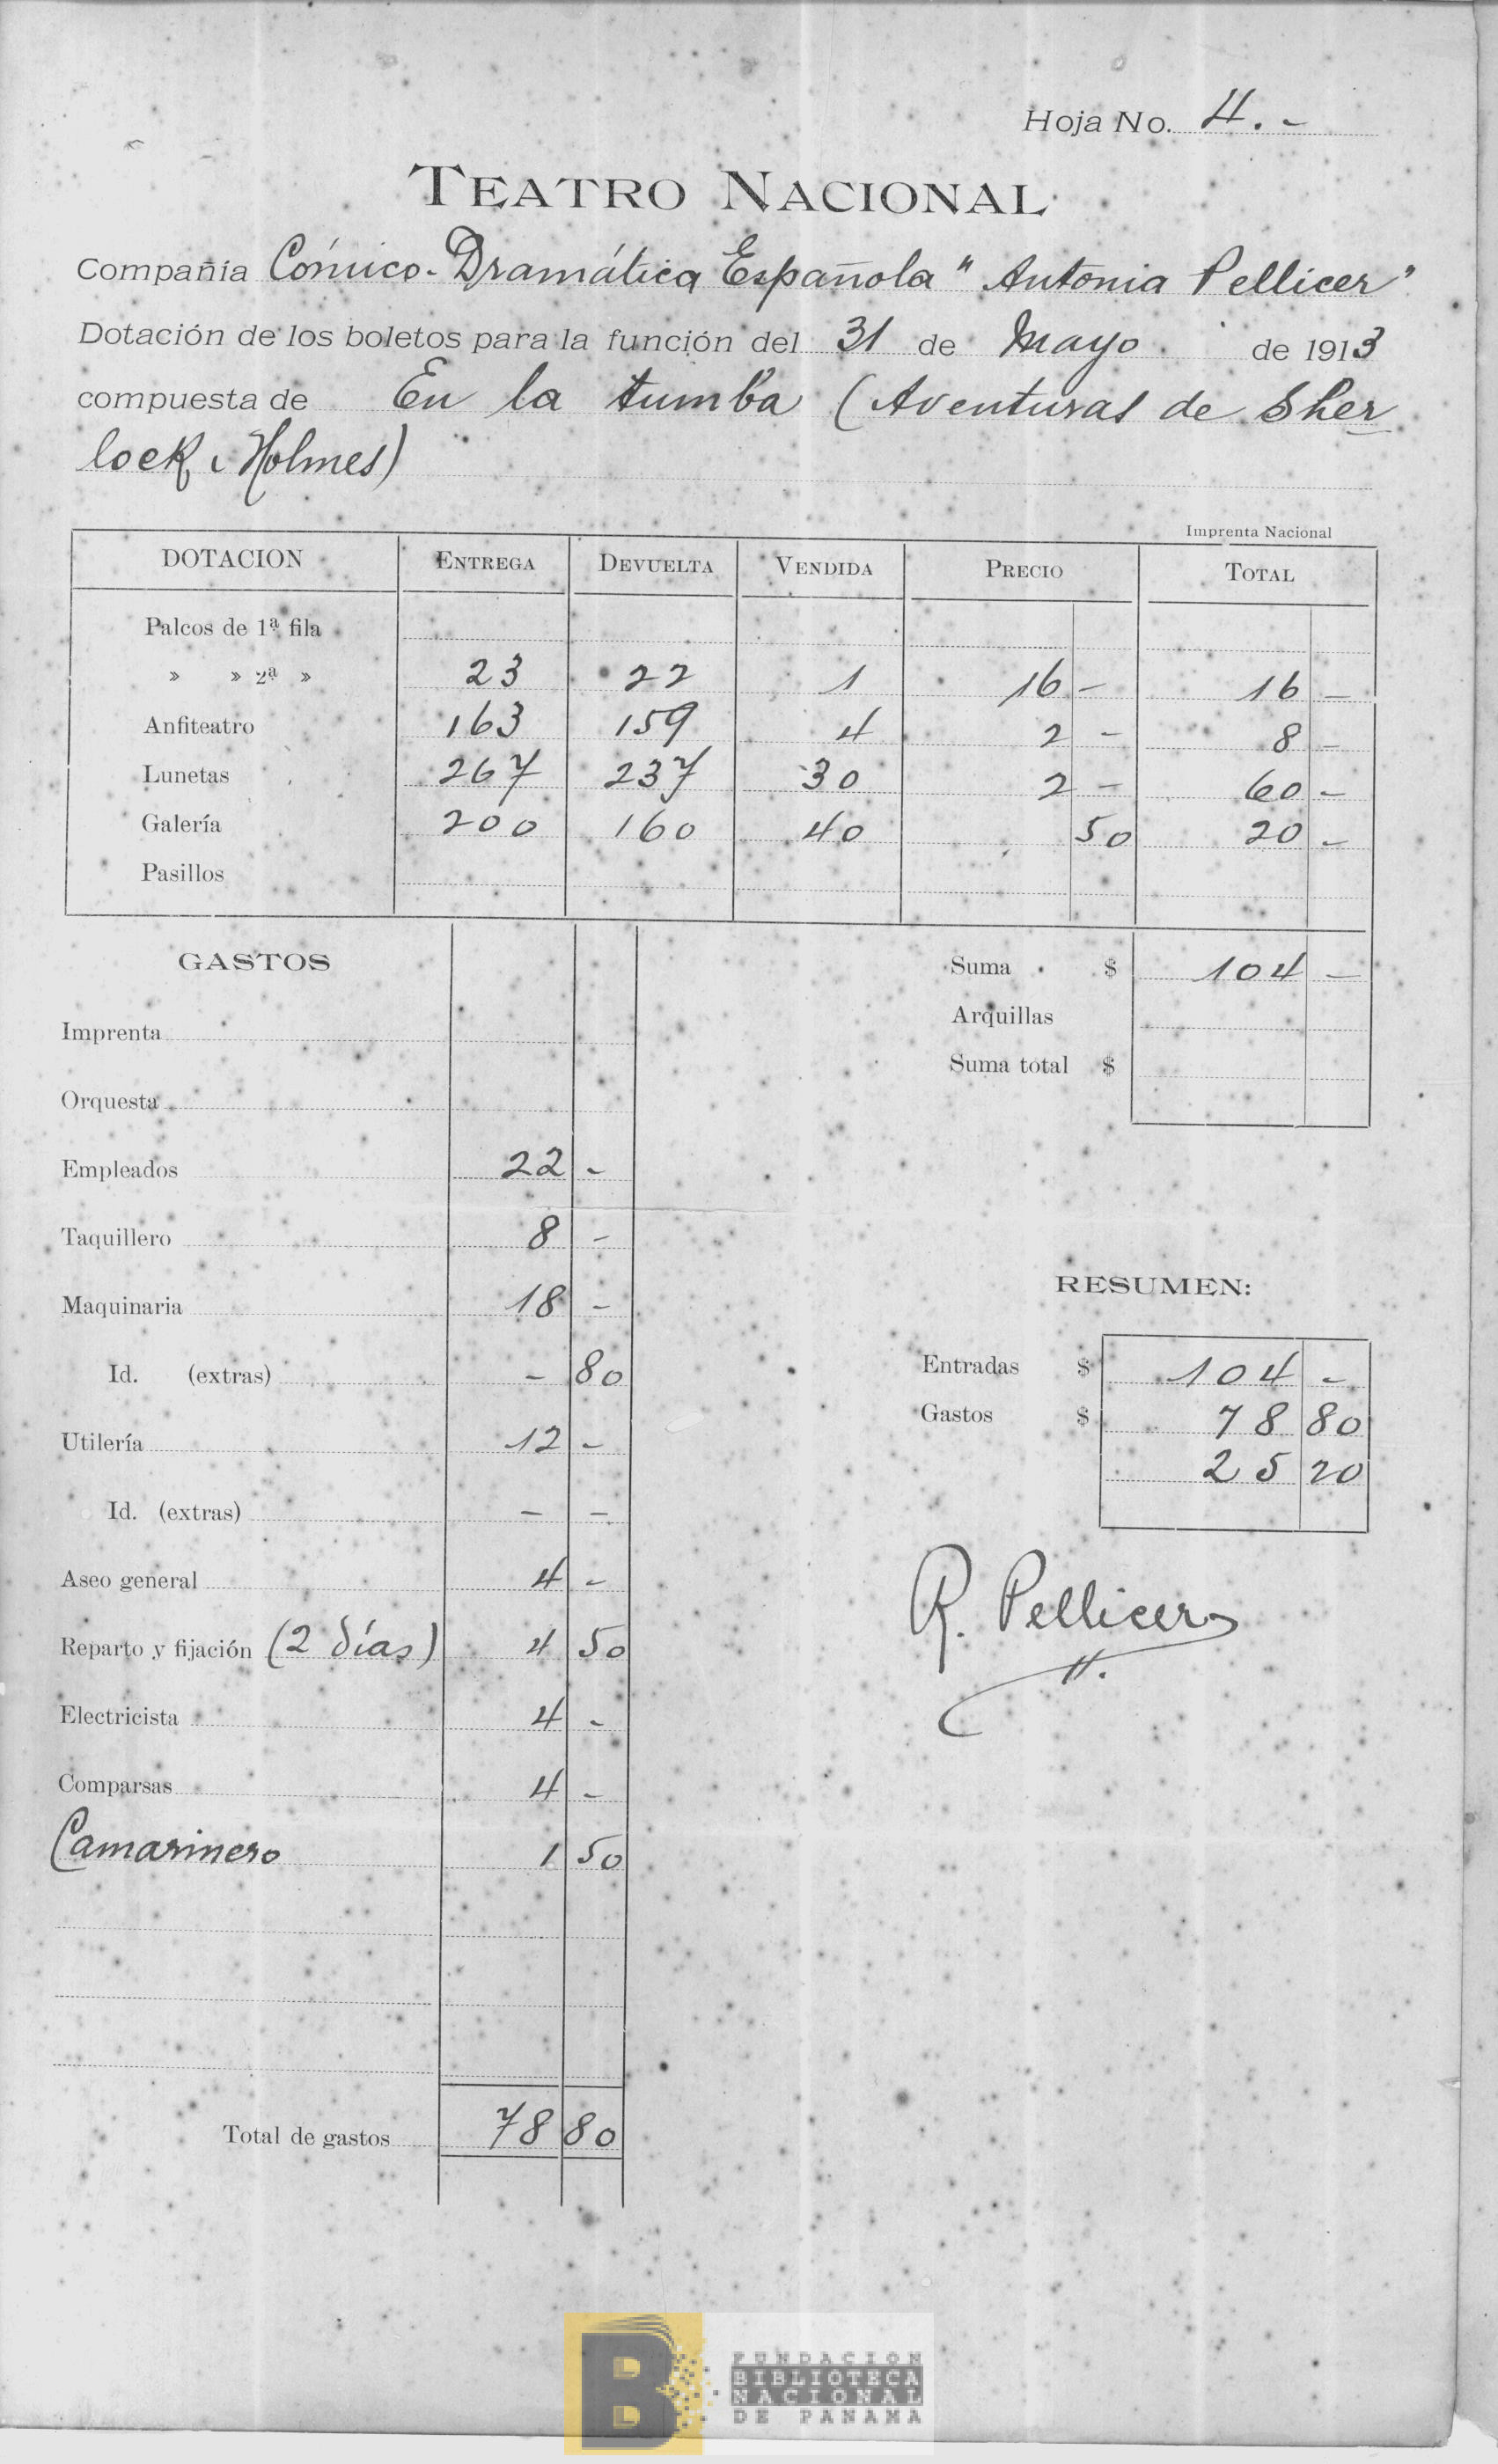 Hoja No. 4.-
TEATRO NACIONAL
Compañía Cómico-Dramática Española "Antonia Pellicer"
Dotación de los boletos para la función del 31 de Mayo de 1913
compuesta de En la tumba (Aventuras de Sher
lock Holmes)
Imprenta Nacional
DOTACION ENTREGA DEVUELTA VENDIDA PRECIO TOTAL
Palcos de 1ª fila
» » 2ª » 23 22 1 16 - 16 -
Anfiteatro 163 159 4 2 - 8 -
Lunetas 267 237 30 2 - 60 -
Galería 200 160 40 50 20 -
Pasillos
GASTOS
Suma $ 104 -
Arquillas
Suma total $
Imprenta
Orquesta
Empleados 22 -
Taquillero 8 -
Maquinaria 18 -
Id. (extras) - 80
Utilería 12 -
Id. (extras) - -
Aseo general 4 -
Reparto y fijación (2 días) 4 50
Electricista 4 -
Comparsas 4 -
Camarinero 1 50
Total de gastos 78 80
RESUMEN:
Entradas $ 104 -
Gastos $ 78 80
25 20
R. Pellicer
FUNDACION
BIBLIOTECA
NACIONAL
DE PANAMA